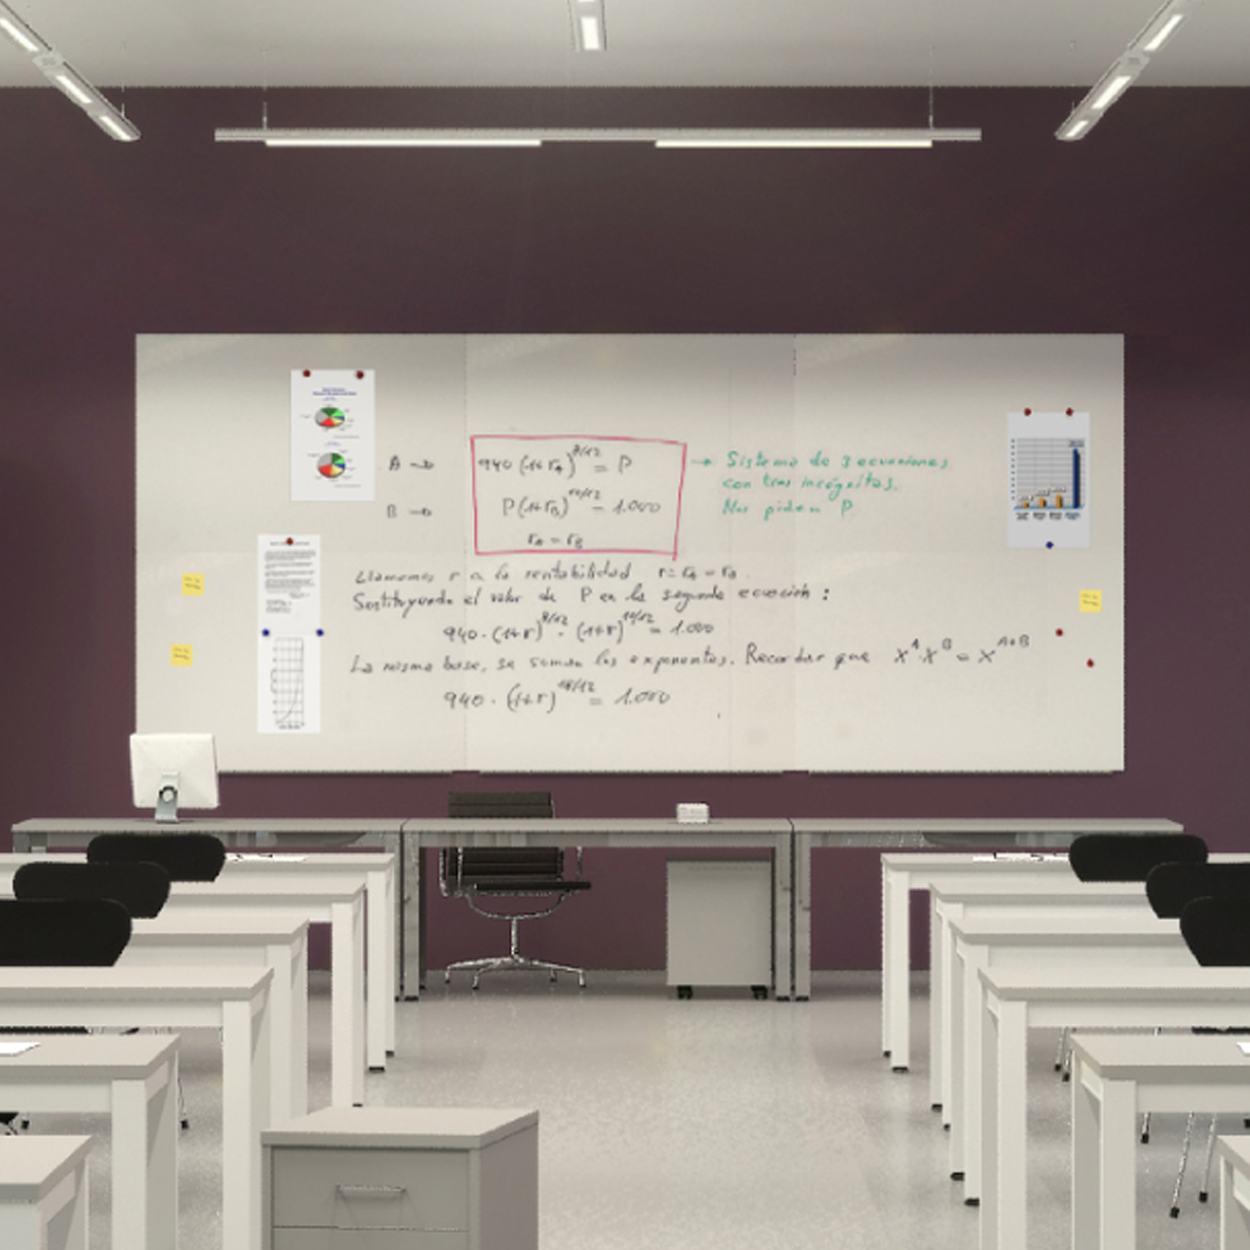 A → 940 (1+r_A)^8/12 = P → Sistema de 3 ecuaciones
con tres incógnitas.
B → P(1+r_B)^10/12 = 1.000 Nos piden P.
r_A = r_B
Llamemos r a la rentabilidad r = r_A = r_B.
Sustituyendo el valor de P en la segunda ecuación:
940 · (1+r)^8/12 · (1+r)^10/12 = 1.000
La misma base, se suman los exponentes. Recordar que x^A · x^B = x^A+B
940 · (1+r)^18/12 = 1.000